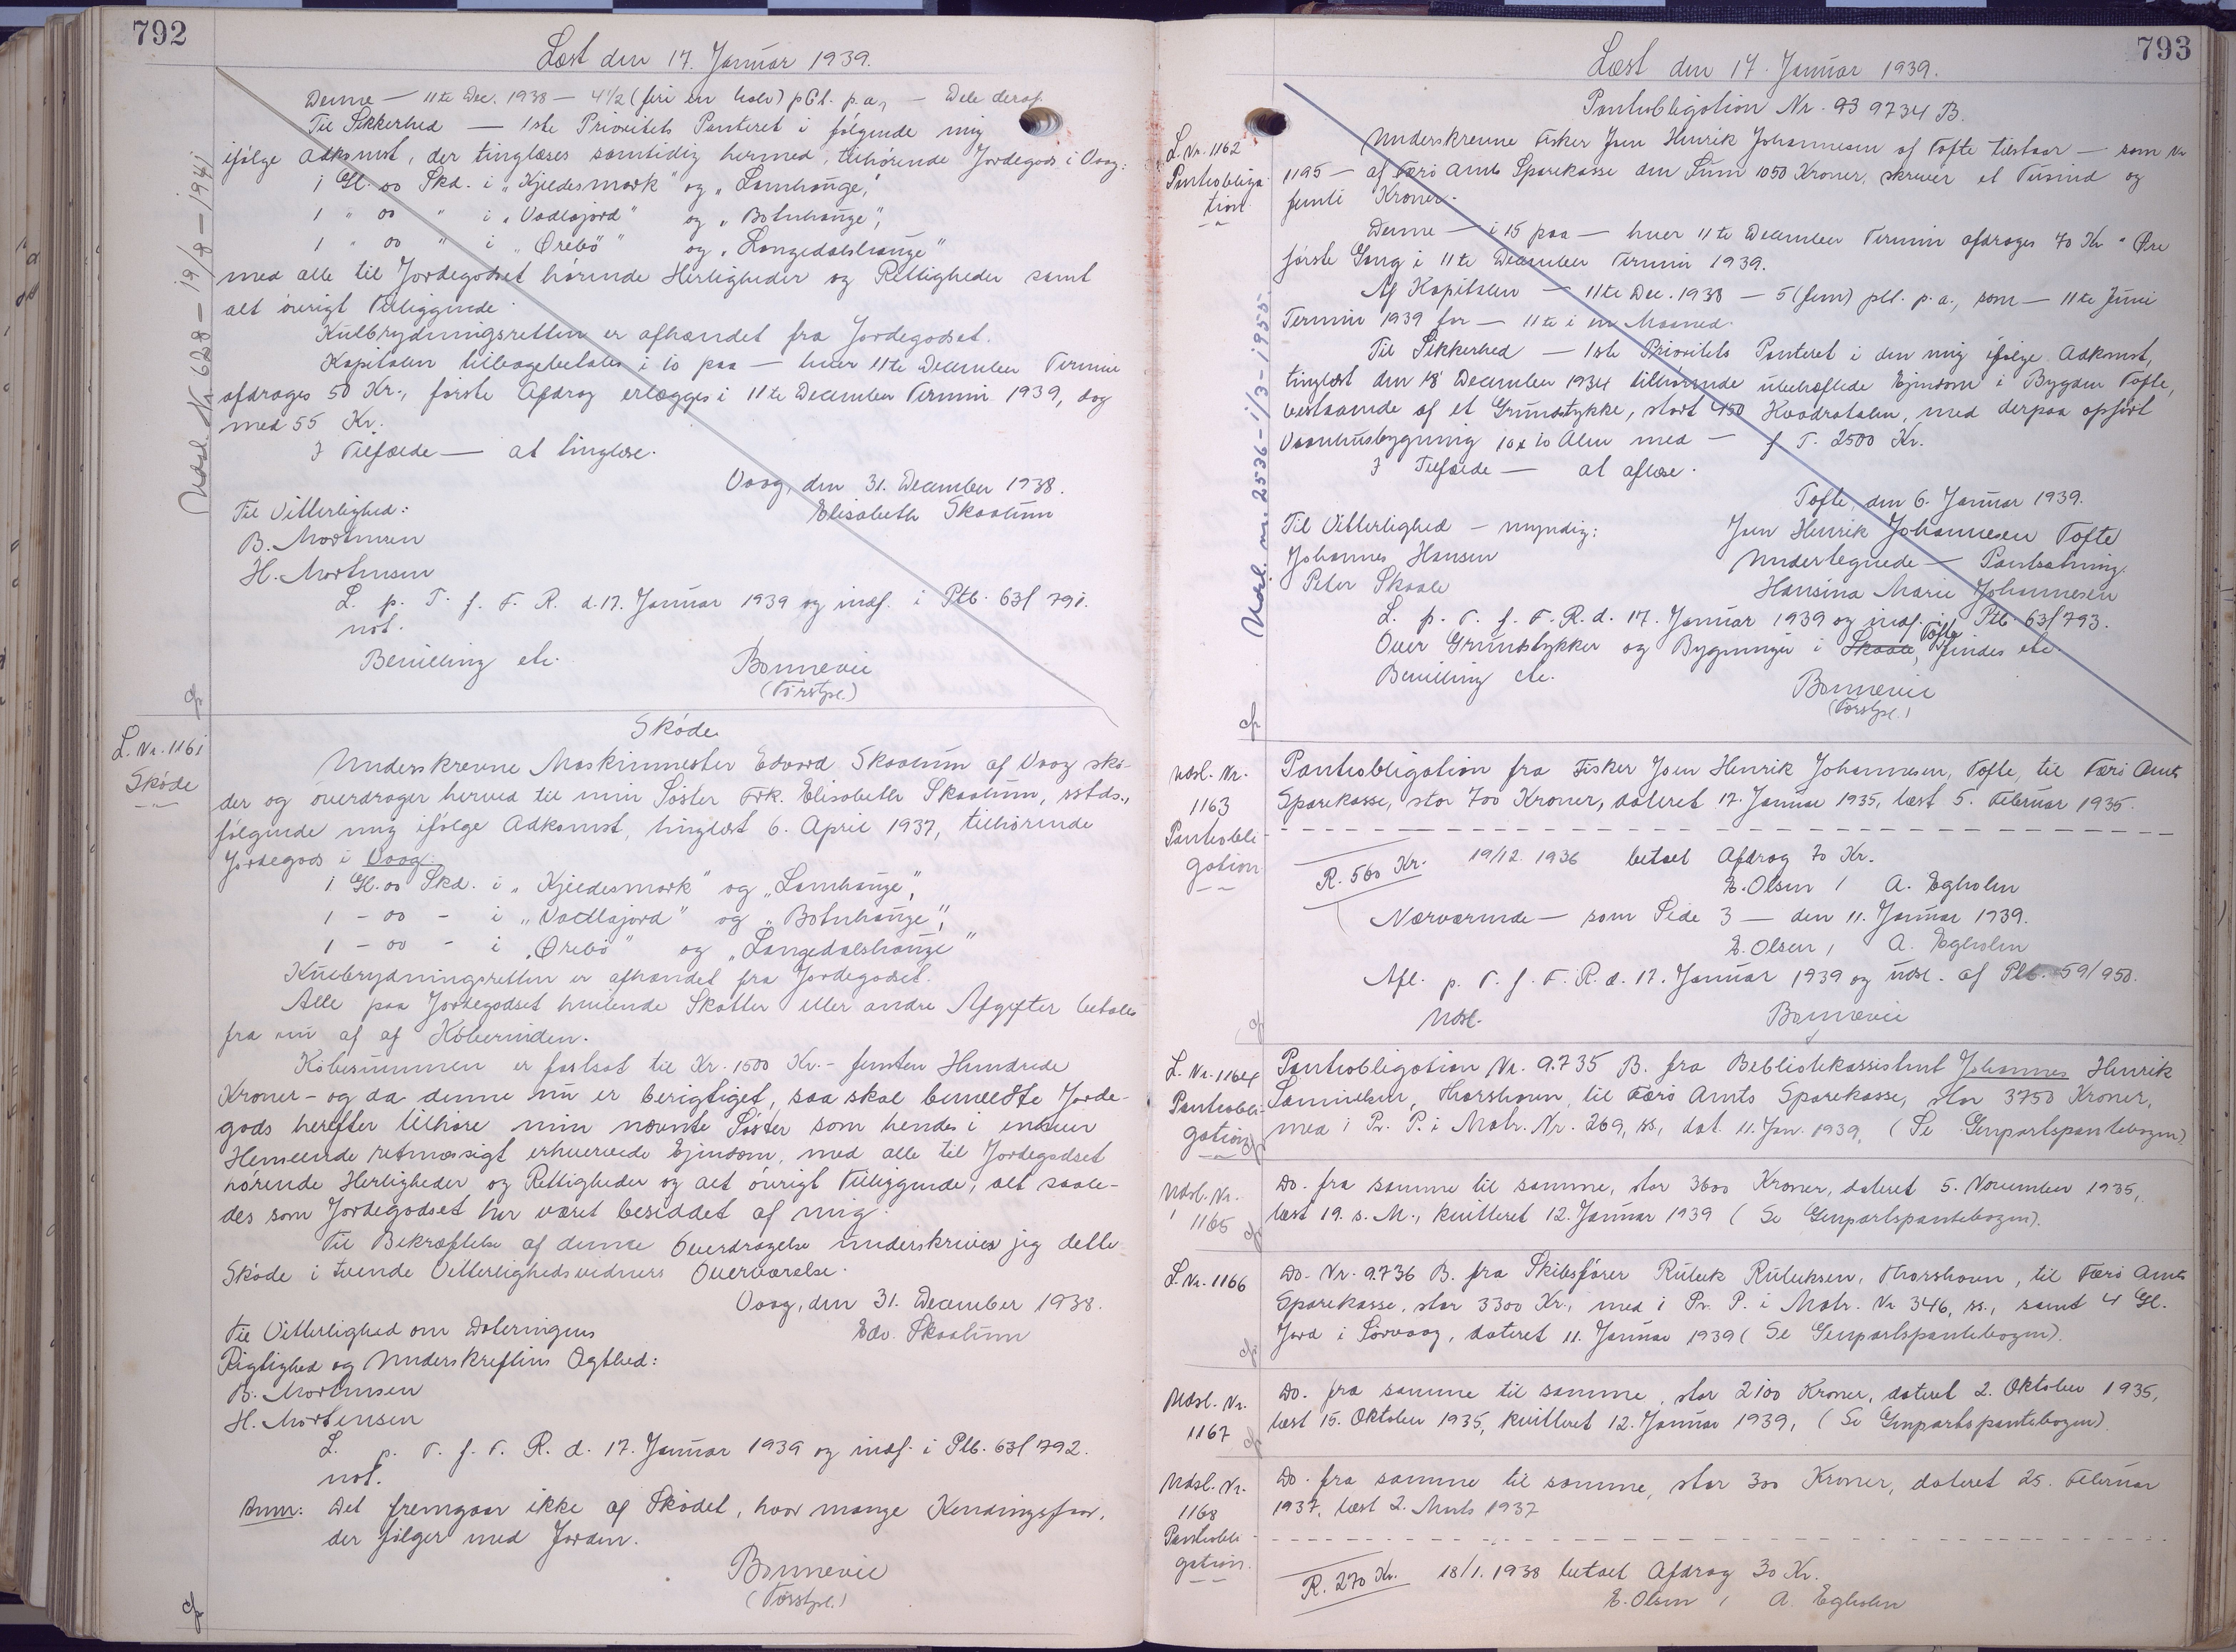 792
Læst den 17. Januar 1939.
Denne — 11te Dec. 1938 — 4½ (fire en halv) pCt. p.a., — Dele deraf.
Til Sikkerhed — 1ste Prioritets Panteret i følgende mig
ifølge Adkomst, der tinglæses samtidig hermed, tilhørende Jordegods i Vaag:
1 Gl. 00 Skd. i „Kjeldesmark" og „Lamhauge",
1 " 00 " i „Vadlajord" og „Botnhauge",
1 " 00 " i „Ørebö" og „Langedalshauge"
med alle til Jordegodset hörende Herligheder og Rettigheder samt
alt övrigt Tilliggende.
Kulbrydningsretten er afhændet fra Jordegodset.
Kapitalen tilbagebetales i 10 paa — hver 11te December Termin
afdrages 50 Kr., förste Afdrag erlægges i 11te December Termin 1939, dog
med 55 Kr.
I Tilfælde — at tinglæse.
Vaag, den 31. December 1938.
Til Vitterlighed:
Elisabeth Skaalum
B. Mortensen
H. Mortensen
L. p. T. f. F. R. d. 17. Januar 1939 og indf. i Ptb. 63/791.
not.
Bevilling etc.
Bonnevie
(Forstpl.)
Udsl. Nr. 628 – 19/8 – 1941
L. Nr. 1161
Skøde
Skøde
Underskrevne Maskinmester Edvard Skaalum af Vaag skø-
der og overdrager herved til min Söster Frk. Elisabeth Skaalum, sstds.,
følgende mig ifølge Adkomst, tinglæst 6. April 1937, tilhørende
Jordegods i Vaag.
1 Gl. 00 Skd. i „Kjeldesmark" og „Lamhauge",
1 – 00 – i „Vadlajord" og „Botnhauge",
1 – 00 – i „Ørebö" og „Langedalshauge"
Kulbrydningsretten er afhændet fra Jordegodset.
Alle paa Jordegodset hvilende Skatter eller andre Afgifter betales
fra nu af af Köberinden.
Köbesummen er fastsat til Kr. 1500 Kr. – femten Hundrede
Kroner – og da denne nu er berigtiget, saa skal bemeldte Jorde-
gods herefter tilhöre min nævnte Söster som hendes i enhver
Henseende retmæssigt erhvervede Ejendom, med alle til Jordegodset
hörende Herligheder og Rettigheder og alt övrigt Tilliggende, alt saale-
des som Jordegodset har været besiddet af mig.
Til Bekræftelse af denne Overdragelse underskriver jeg dette
Skøde i tvende Vitterlighedsvidners Overværelse.
Vaag, den 31. December 1938.
Til Vitterlighed om Dateringens
Edv. Skaalum
Rigtighed og Underskriftens Ægthed:
B. Mortensen
H. Mortensen
L. p. T. f. F. R. d. 17. Januar 1939 og indf. i Ptb. 63/792.
not.
Anm: Det fremgaar ikke af Skødet, hvor mange Kendingsfaar,
der følger med Jorden.
Bonnevie
(Forstpl.)
793
Læst den 17. Januar 1939.
Pantobligation Nr. 93 9734 B.
L. Nr. 1162
Pantobliga
tion
Underskrevne Fisker Joen Henrik Johannesen af Tofte tilstaar — som Nr
1195 — af Færø Amts Sparekasse den Sum 1050 Kroner, skriver et Tusind og
femti Kroner.
Denne — i 15 paa — hver 11te December Termin afdrages 70 Kr " Øre
første Gang i 11te December Termin 1939.
Af Kapitalen — 11te Dec. 1938 — 5 (fem) pCt. p.a., som — 11te Juni
Termin 1939 for — 11te i en Maaned.
Til Sikkerhed — 1ste Prioritets Panteret i den mig ifølge Adkomst,
tinglæst den 18 December 1934 tilhørende ubehæftede Ejendom i Bygden Tofte,
bestaaende af et Grundstykke, stort 450 Kvadratalen, med derpaa opført
Vaaningsbygning 10 x 10 Alen med — f T. 2500 Kr.
I Tilfælde — at aflæse.
Tofte, den 6. Januar 1939.
Til Vitterlighed – myndig:
Joen Henrik Johannesen Tofte
Johannes Hansen
Undertegnede — Pantsætning.
Peter Skaale
Hansina Marie Johannesen
L. p. T. f. F. R. d. 17. Januar 1939 og indf. i Ptb. 63/793.
Over Grundstykker og Bygninger i Skaale, Tofte findes etc.
Bevilling etc.
Bonnevie
(Forstpl.)
Udsl. nr. 2536 – 1/3 – 1955.
Udsl. Nr.
1163
Pantobli-
gation
Pantobligation fra Fisker Joen Henrik Johannesen, Tofte, til Færø Amts
Sparekasse, stor 700 Kroner, dateret 17. Januar 1935, læst 5. Februar 1935.
R. 560 Kr. 19/12 1936 betalt Afdrag 70 Kr.
E. Olsen / A. Egholm
Nærværende — som Side 3 — den 11. Januar 1939.
E. Olsen / A. Egholm
Afl. p. T. f. F. R. d. 17. Januar 1939 og udsl. af Ptb. 59/950.
Udsl.
Bonnevie
L. Nr. 1164
Pantobli-
gation
Pantobligation Nr. 9.735 B. fra Bibliotekassistent Johannes Henrik
Samuelsen, Thorshavn, til Færø Amts Sparekasse, stor 3750 Kroner,
med 1 Pr. P. i Matr. Nr. 269, ss., dat. 11. Jan. 1939, (Se Genpartspantebogen)
Udsl. Nr.
1165
Do. fra samme til samme, stor 3600 Kroner, dateret 5. November 1935,
læst 19. s. M., kvitteret 12. Januar 1939 (Se Genpartspantebogen).
L. Nr. 1166
Do. Nr. 9.736 B. fra Skibsfører Rulek Ruleksen, Thorshavn, til Færø Amts
Sparekasse, stor 3300 Kr., med 1 Pr. P. i Matr. Nr 346, ss., samt 4 Gl.
Jord i Sørvaag, dateret 11. Januar 1939 (Se Genpartspantebogen).
Udsl. Nr.
1167
Do. fra samme til samme, stor 2100 Kroner, dateret 2. Oktober 1935,
læst 15. Oktober 1935, kvitteret 12. Januar 1939, (Se Genpartspantebogen).
Udsl. Nr.
1168
Pantobli-
gation.
Do. fra samme til samme, stor 300 Kroner, dateret 25. Februar
1937, læst 2. Marts 1937
R. 270 Kr. 18/1. 1938 betalt Afdrag 30 Kr.
E. Olsen / A. Egholm